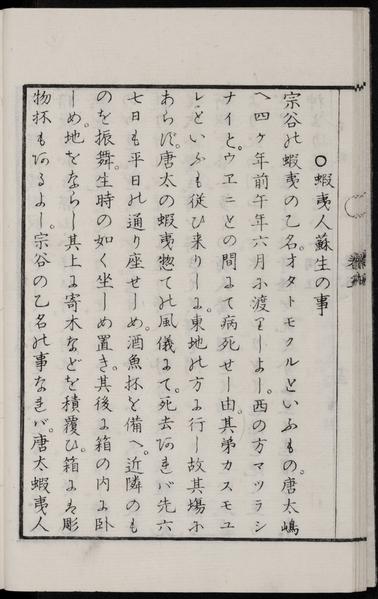 ○蝦夷人蘇生の事
宗谷の蝦夷の乙名。オタトモクルといふもの。唐太嶋
へ四ヶ年前午年六月に渡りしよし。西の方マツラシ
ナイと。ウヱニとの間にて病死せし由。其弟カスモユ
レといふも従ひ来りしに。東地の方に行し故其場に
あらず。唐太の蝦夷惣ての風儀にて。死去あれば先六
七日も平日の通り座せしめ。酒魚抔を備へ。近隣のも
のを振舞。生時の如く坐しめ置き。其後に箱の内に卧
しめ。地をならし其上に寄木などを積覆ひ。箱には彫
物抔もあるよし。宗谷の乙名の事なれば。唐太蝦夷人